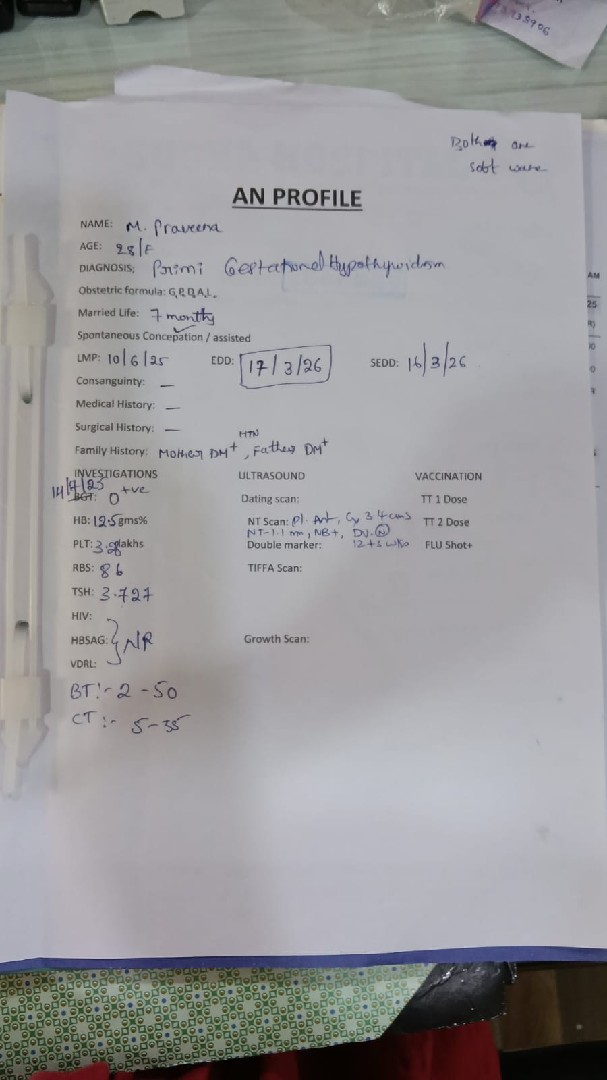 935906
Both are
sobt ware
AN PROFILE
NAME: M. Praveena
AGE: 28/F
DIAGNOSIS: Primi Gestational Hypothyroidism
Obstetric formula: G, P, 0, A, L,
Married Life: 7 months
Spontaneous Concepation / assisted
LMP: 10/6/25 EDD: 17/3/26 SEDD: 16/3/26
Consanguinty: —
Medical History: —
Surgical History: —
HTN
Family History: Mother DM+, Father DM+
INVESTIGATIONS ULTRASOUND VACCINATION
14/7/25
BGT: O +ve Dating scan: TT 1 Dose
HB: 12.5 gms% NT Scan: Pl. Ant, Cx 3.4 cms TT 2 Dose
NT-1.1 mm, NB+, DV-N
PLT: 3. lakhs Double marker: 12+1 wks FLU Shot+
RBS: 86 TIFFA Scan:
TSH: 3.727
HIV:
HBSAG: } NR Growth Scan:
VDRL:
BT:- 2-50
CT:- 5-35
AM
25